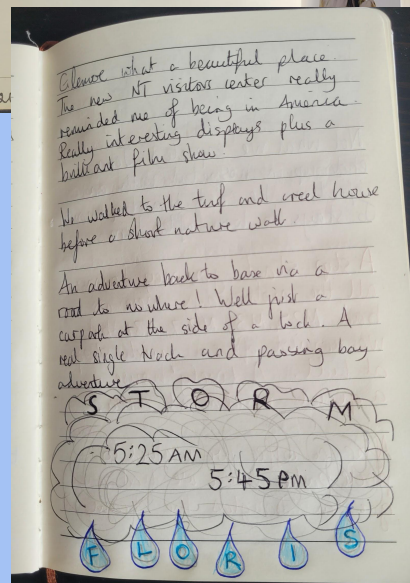 Glencoe what a beautiful place.
The new NT visitors center really
reminded me of being in America.
Really interesting displays plus a
brilliant film show.
We walked to the turf and creel house
before a short nature walk.
An adventure back to base via a
road to nowhere! Well just a
carpark at the side of a loch. A
real single track and passing bay
adventure
STORM
5:25 AM
5:45 PM
FLORIS